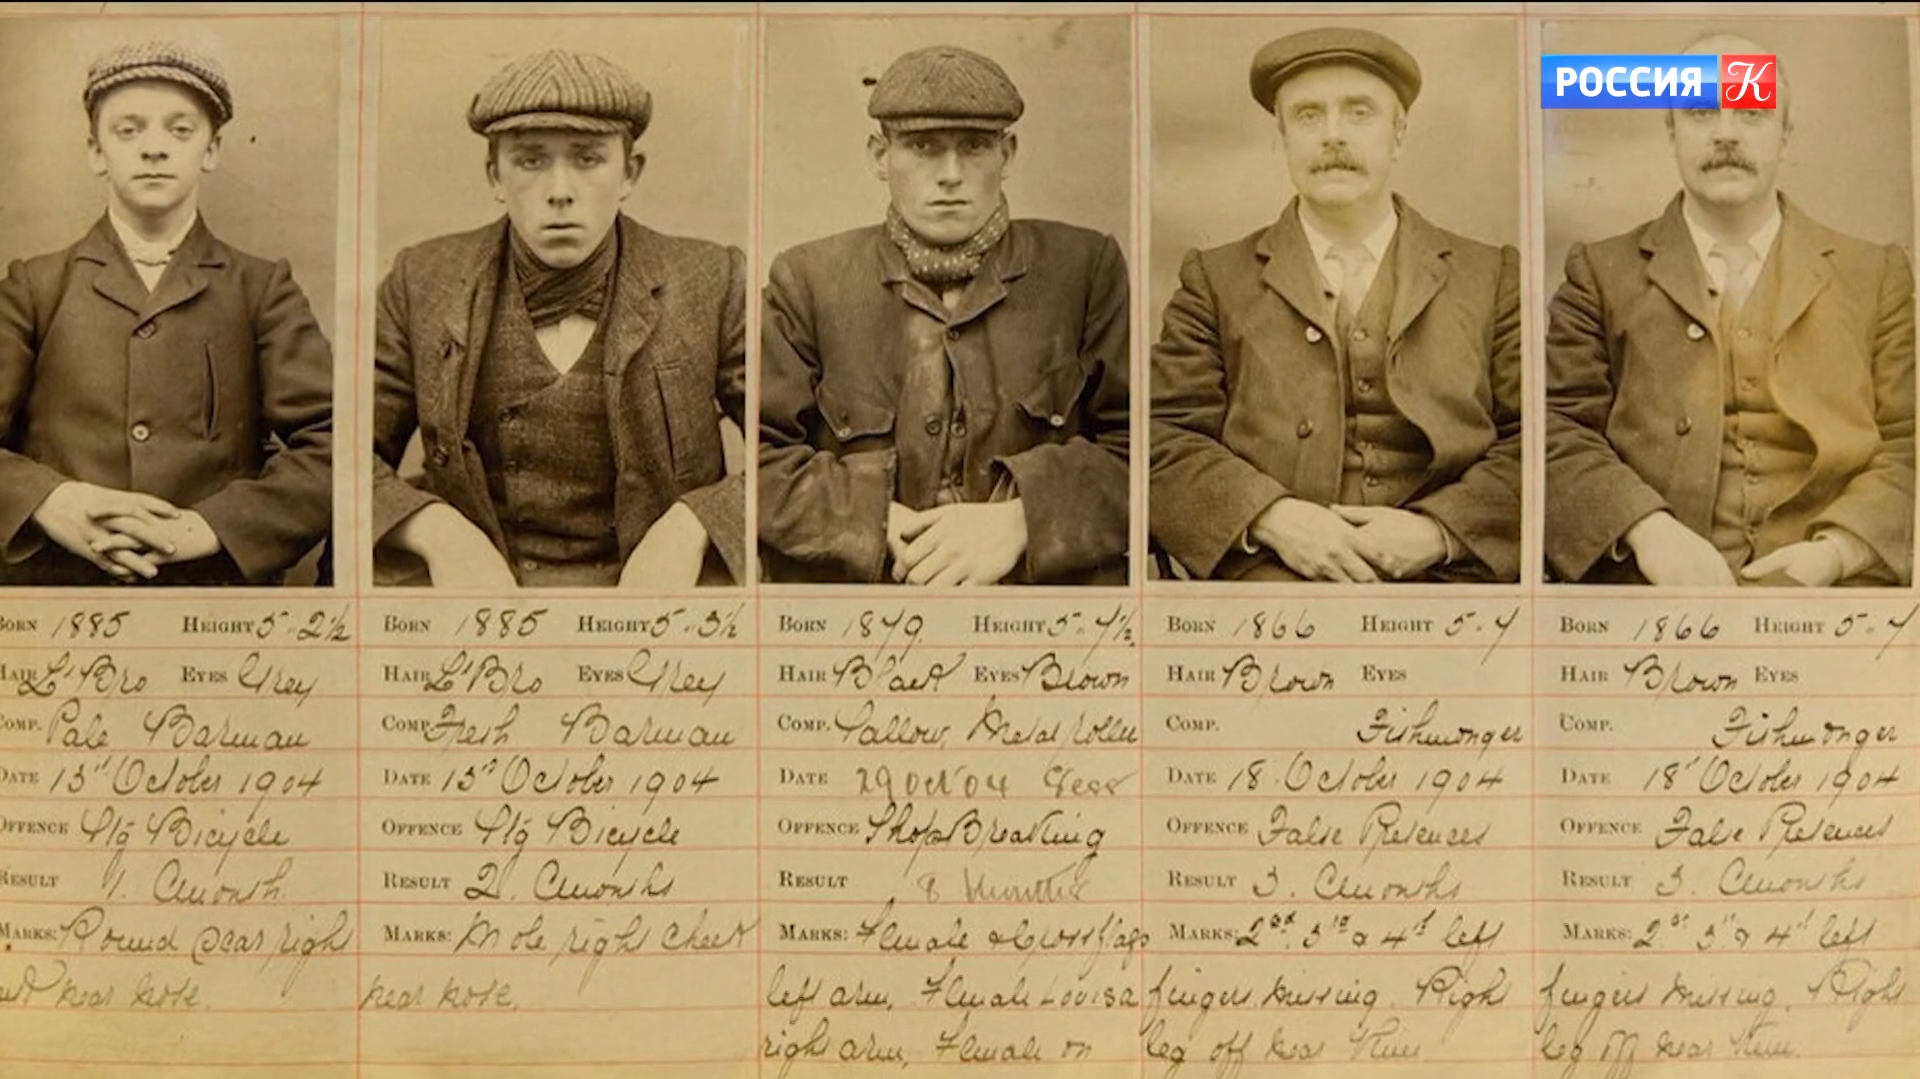 РОССИЯ К
BORN 1885 HEIGHT 5-2½
HAIR Lt Bro EYES Grey
COMP. Pale Barman
DATE 13th October 1904
OFFENCE Stg Bicycle
RESULT 1. Cmonth.
MARKS: Round scar right
near nose.
BORN 1885 HEIGHT 5-3½
HAIR Lt Bro EYES Grey
COMP. Fresh Barman
DATE 13th October 1904
OFFENCE Stg Bicycle
RESULT 2. Cmonths
MARKS: Mole right cheek
near nose.
BORN 1879. HEIGHT 5-7½
HAIR Black EYES Brown
COMP. Sallow, Metal roller
DATE 29 Oct 04 Sess
OFFENCE Shop Breaking
RESULT 8 Months
MARKS: Female & Cross flags
left arm, Female Lovisa
right arm, Female on
BORN 1866 HEIGHT 5-7
HAIR Brown EYES
COMP. Fishmonger
DATE 18 October 1904
OFFENCE False Pretences
RESULT 3. Cmonths
MARKS: 2nd 3rd & 4th left
fingers missing. Right
leg off near knee
BORN 1866 HEIGHT 5-7
HAIR Brown EYES
COMP. Fishmonger
DATE 18th October 1904
OFFENCE False Pretences
RESULT 3. Cmonths
MARKS: 2nd 3rd & 4th left
fingers missing. Right
leg off near knee.